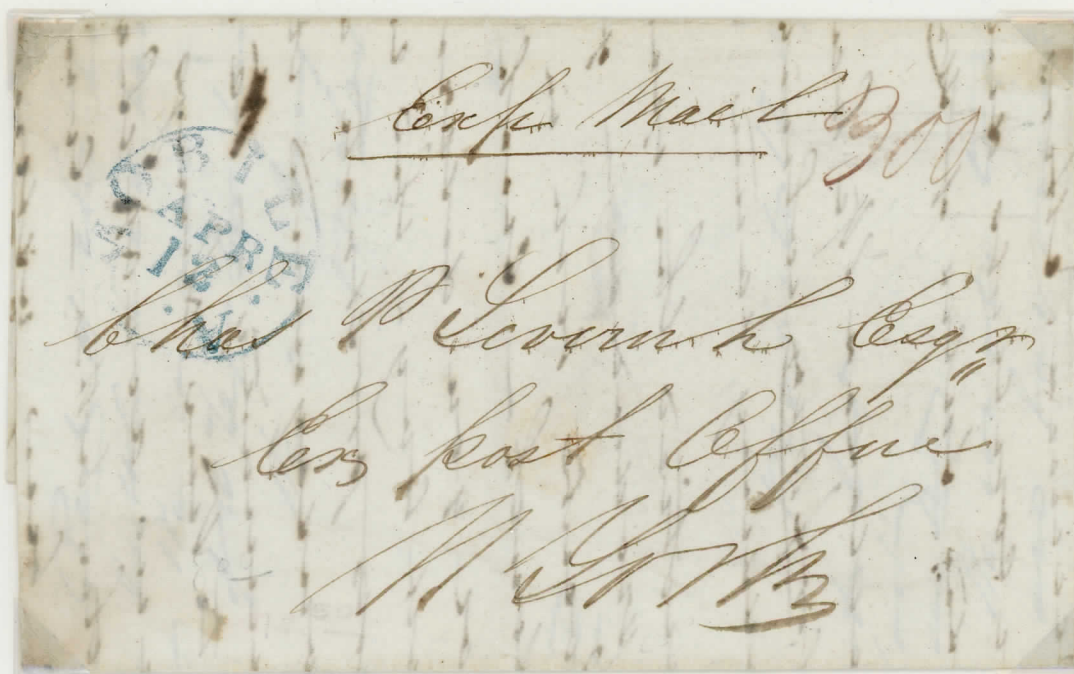 Exp Mail 300
MOBILE
APRE
Chas P Leverich Esqr
Ex post Office
N York